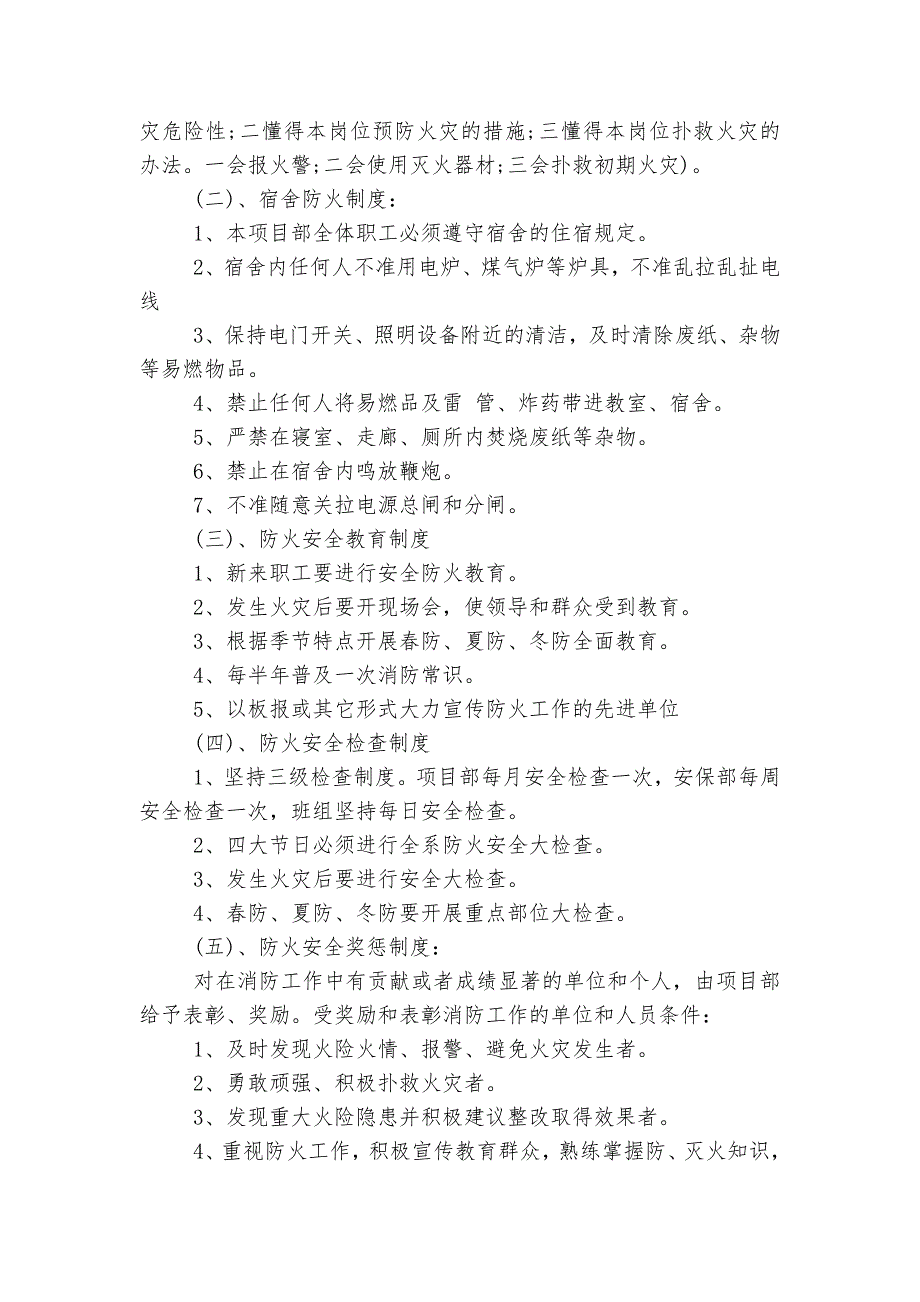 灾危险性;二懂得本岗位预防火灾的措施;三懂得本岗位扑救火灾的
办法。一会报火警;二会使用灭火器材;三会扑救初期火灾)。
(二)、宿舍防火制度：
1、本项目部全体职工必须遵守宿舍的住宿规定。
2、宿舍内任何人不准用电炉、煤气炉等炉具，不准乱拉乱扯电
线
3、保持电门开关、照明设备附近的清洁，及时清除废纸、杂物
等易燃物品。
4、禁止任何人将易燃品及雷 管、炸药带进教室、宿舍。
5、严禁在寝室、走廊、厕所内焚烧废纸等杂物。
6、禁止在宿舍内鸣放鞭炮。
7、不准随意关拉电源总闸和分闸。
(三)、防火安全教育制度
1、新来职工要进行安全防火教育。
2、发生火灾后要开现场会，使领导和群众受到教育。
3、根据季节特点开展春防、夏防、冬防全面教育。
4、每半年普及一次消防常识。
5、以板报或其它形式大力宣传防火工作的先进单位
(四)、防火安全检查制度
1、坚持三级检查制度。项目部每月安全检查一次，安保部每周
安全检查一次，班组坚持每日安全检查。
2、四大节日必须进行全系防火安全大检查。
3、发生火灾后要进行安全大检查。
4、春防、夏防、冬防要开展重点部位大检查。
(五)、防火安全奖惩制度：
对在消防工作中有贡献或者成绩显著的单位和个人，由项目部
给予表彰、奖励。受奖励和表彰消防工作的单位和人员条件：
1、及时发现火险火情、报警、避免火灾发生者。
2、勇敢顽强、积极扑救火灾者。
3、发现重大火险隐患并积极建议整改取得效果者。
4、重视防火工作，积极宣传教育群众，熟练掌握防、灭火知识，